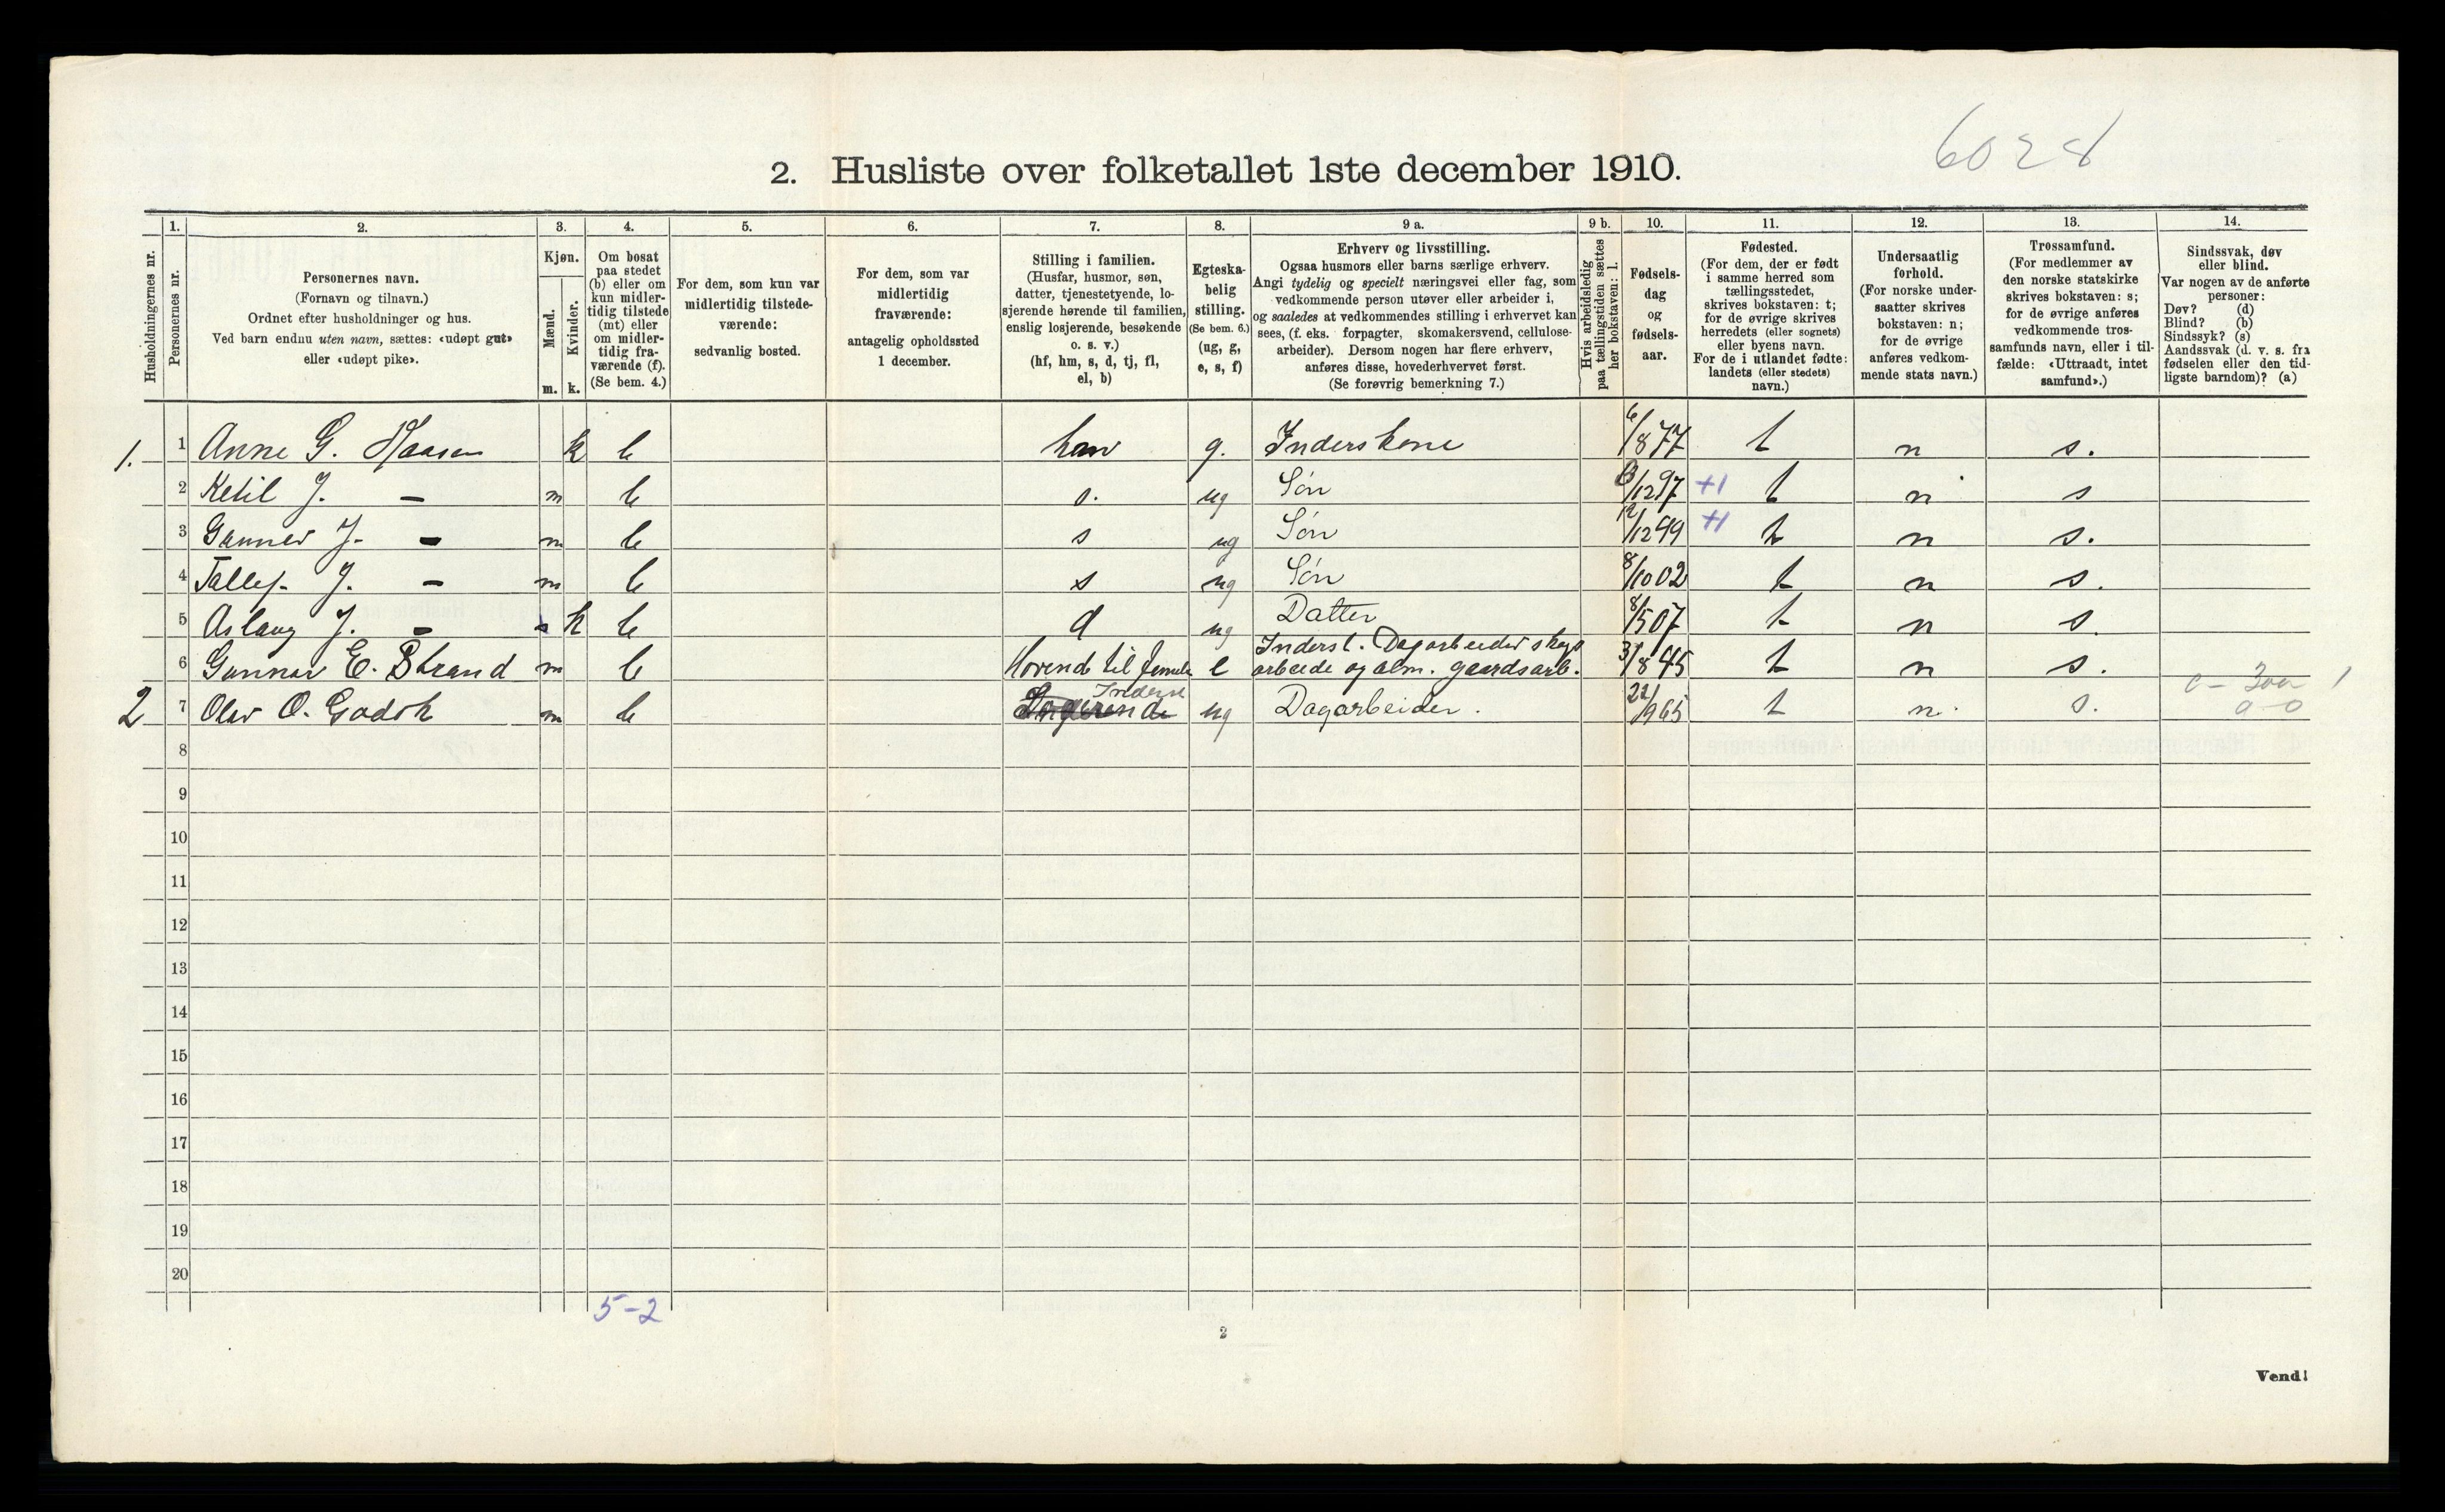 6028
2. Husliste over folketallet 1ste december 1910.
Husholdningernes nr.
1.
Personernes nr.
2.
Personernes navn.
(Fornavn og tilnavn.)
Ordnet efter husholdninger og hus.
Ved barn endnu uten navn, sættes: «udøpt gut»
eller «udøpt pike».
3.
Kjøn.
Mænd.
Kvinder.
m. k.
4.
Om bosat
paa stedet
(b) eller om
kun midler-
tidig tilstede
(mt) eller
om midler-
tidig fra-
værende (f).
(Se bem. 4.)
5.
For dem, som kun var
midlertidig tilstede-
værende:
sedvanlig bosted.
6.
For dem, som var
midlertidig
fraværende:
antagelig opholdssted
1 december.
7.
Stilling i familien.
(Husfar, husmor, søn,
datter, tjenestetyende, lo-
sjerende hørende til familien,
enslig losjerende, besøkende
o. s. v.)
(hf, hm, s, d, tj, fl,
el, b)
8.
Egteska-
belig
stilling.
(Se bem. 6.)
(ug, g,
e, s, f)
9 a.
Erhverv og livsstilling.
Ogsaa husmors eller barns særlige erhverv.
Angi tydelig og specielt næringsvei eller fag, som
vedkommende person utøver eller arbeider i,
og saaledes at vedkommendes stilling i erhvervet kan
sees, (f. eks. forpagter, skomakersvend, cellulose-
arbeider). Dersom nogen har flere erhverv,
anføres disse, hovederhvervet først.
(Se forøvrig bemerkning 7.)
9 b.
Hvis arbeidsledig
paa tællingstiden sættes
her bokstaven: l.
10.
Fødsels-
dag
og
fødsels-
aar.
11.
Fødested.
(For dem, der er født
i samme herred som
tællingsstedet,
skrives bokstaven: t;
for de øvrige skrives
herredets (eller sognets)
eller byens navn.
For de i utlandet fødte:
landets (eller stedets)
navn.)
12.
Undersaatlig
forhold.
(For norske under-
saatter skrives
bokstaven: n;
for de øvrige
anføres vedkom-
mende stats navn.)
13.
Trossamfund.
(For medlemmer av
den norske statskirke
skrives bokstaven: s;
for de øvrige anføres
vedkommende tros-
samfunds navn, eller i til-
fælde: «Uttraadt, intet
samfund».)
14.
Sindssvak, døv
eller blind.
Var nogen av de anførte
personer:
Døv? (d)
Blind? (b)
Sindssyk? (s)
Aandssvak (d. v. s. fra
fødselen eller den tid-
ligste barndom)? (a)
1. 1 Anne G. k b g. Inderskone 6/877 t n s.
2 Ketil J. — m b s. ug Søn /1297 +1 t n s
3 Gunner J. — m b s ug Søn 12/1299 +1 t n s.
4 J. — m b s ug Søn 8/1002 t n s.
5 Aslaug J. — k b d ug Datter 8/507 t n s.
6 Gunnar E. Strand m b til e Inderst. Dagarbeider skogs
arbeide og alm. gaardsarb. 31/845 t n s.
2 7 Olav O. m b Inderst ug Dagarbeider. 22/965 t n. s.
8
9
10
11
12
13
14
15
16
17
18
19
20
5-2
2
Vend!